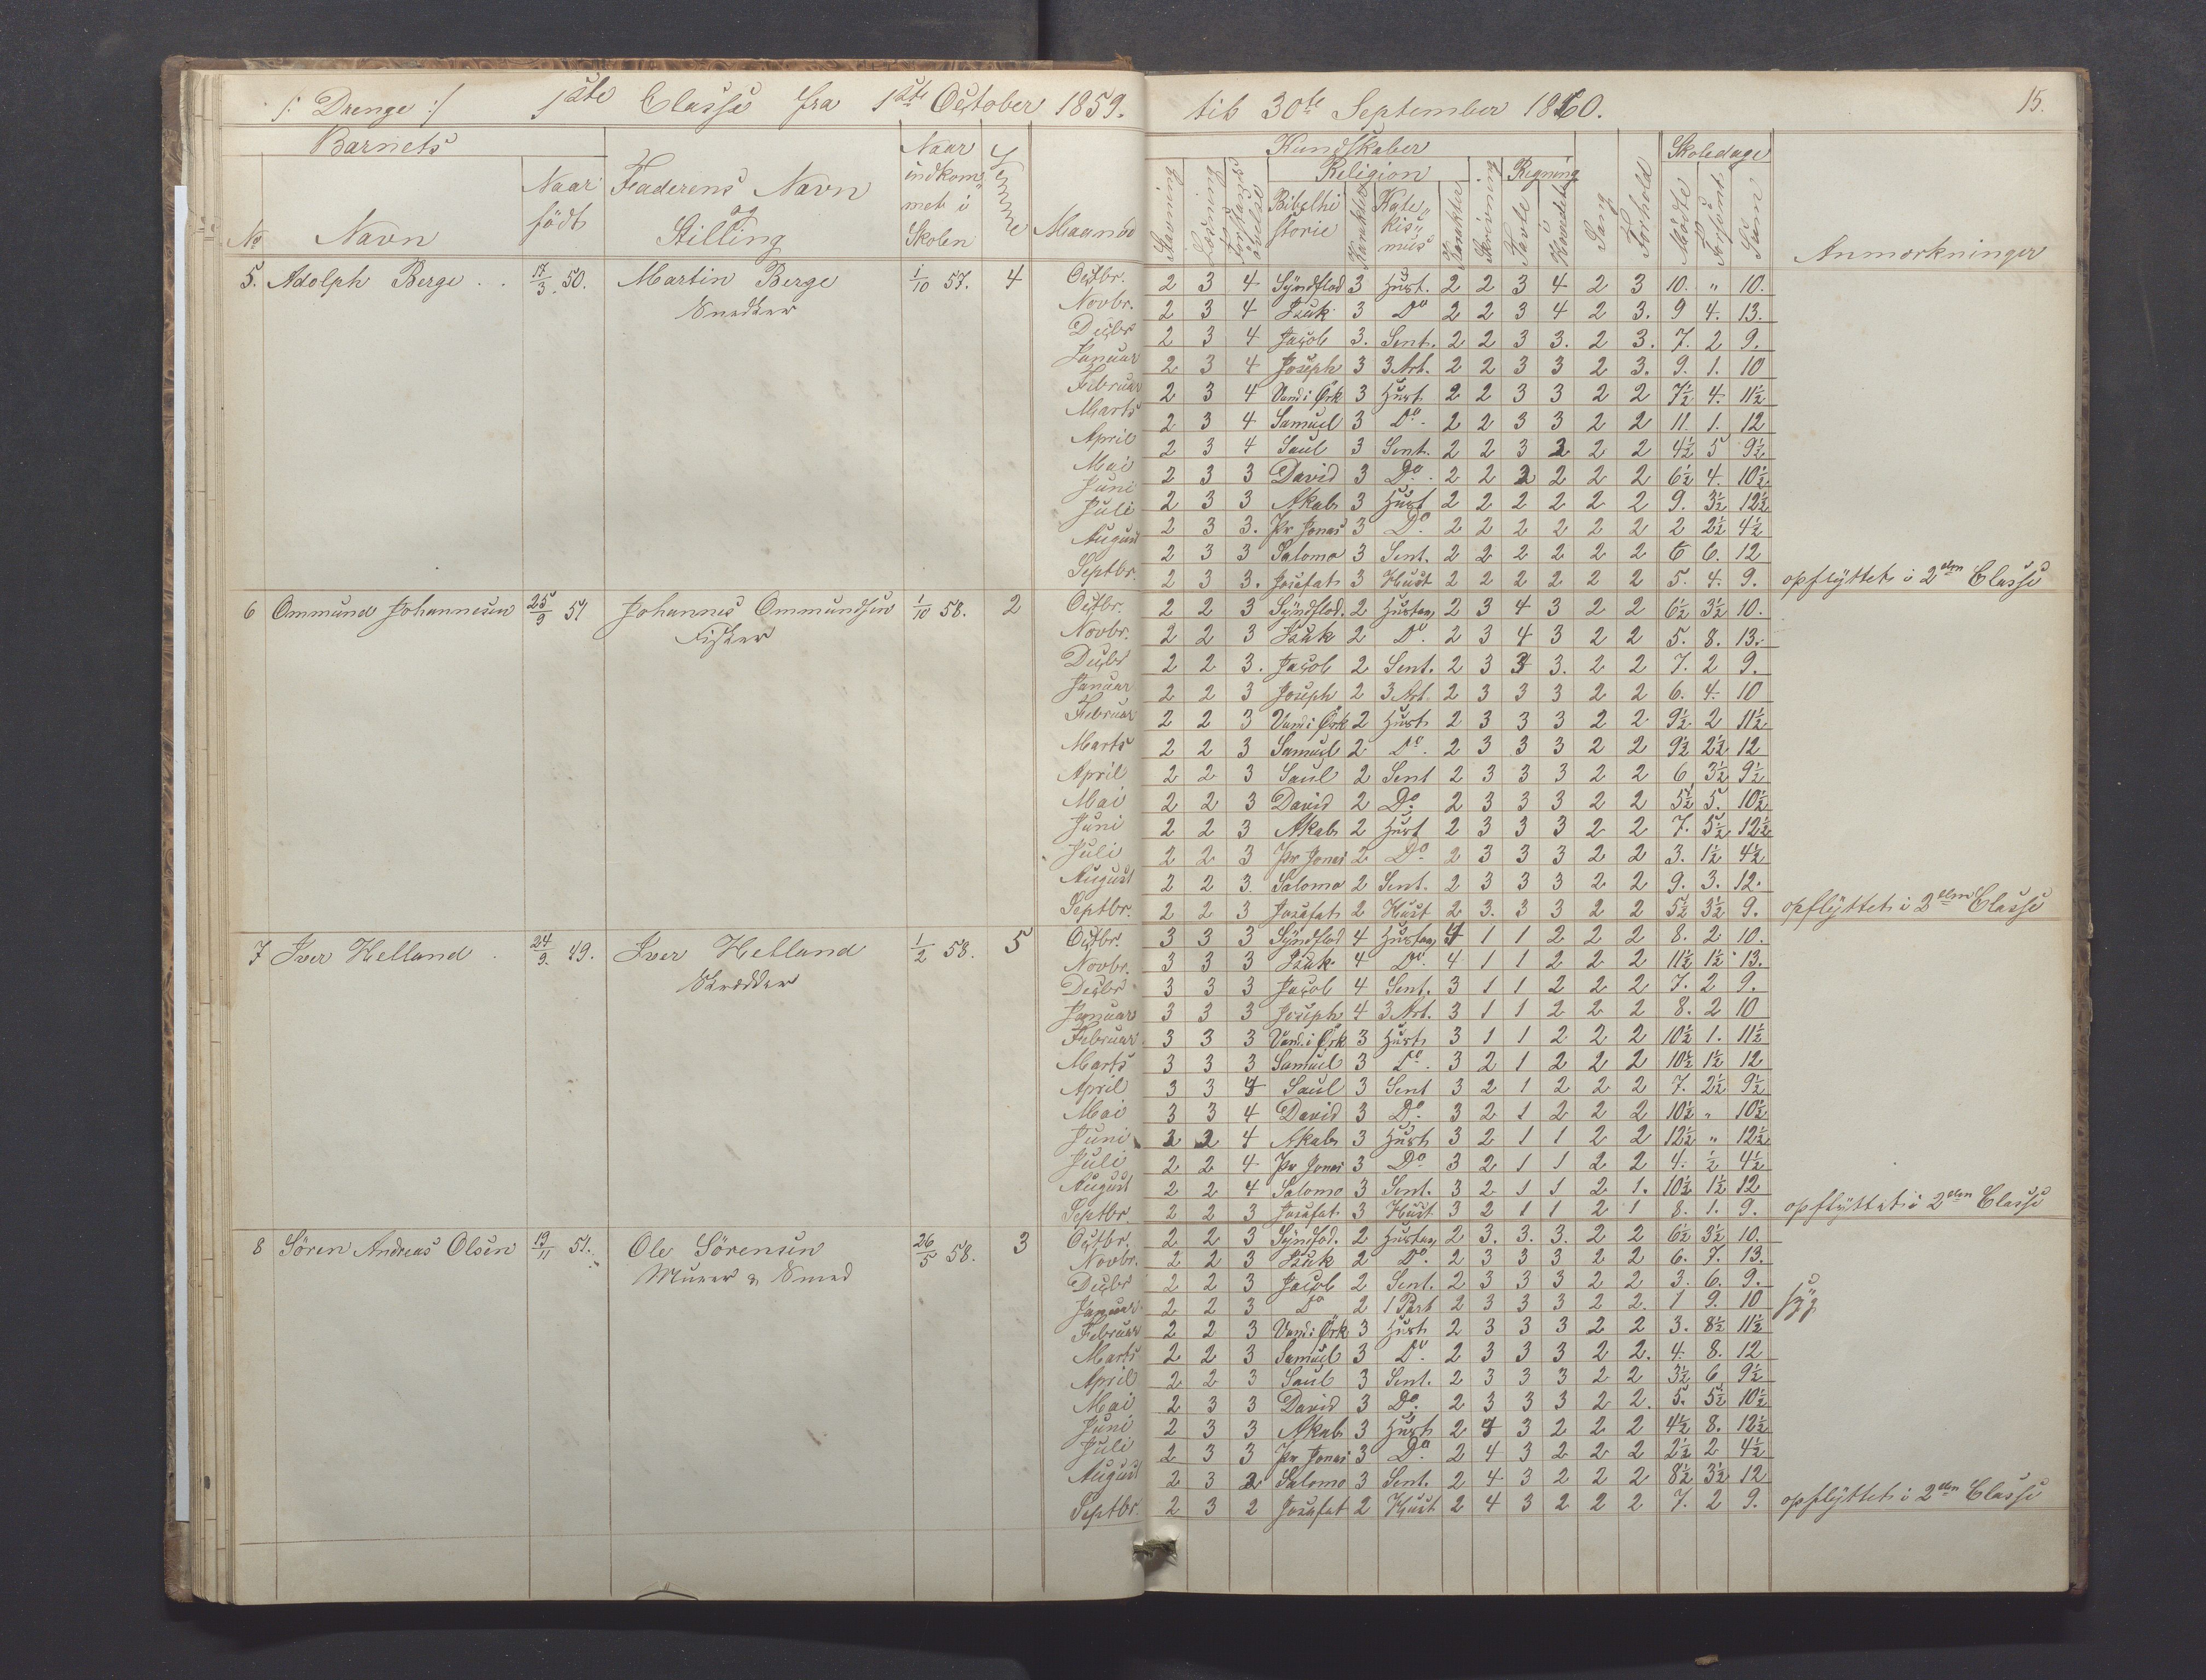 /: Drenge :/ 1ste Classe fra 1ste October 1859. til 30te September 1860. 15.
Barnets Kundskaber Skoledage
No Navn Naar födt Faderens Navn og Stilling Naar indkommet i Skolen Evne Maaned Stavning Læsning Forstandsövelse Religion Bibelhistorie Karakter Katekismus Karakter Skrivning Regning Tavle Hovedet Sang Forhold Mödte Forsömt Sum Anmærkninger
5. Adolph Berge 17/3 50. Martin Berge 1/10 57. 4 Octbr. 2 3 4 Syndflod 3 Hust. 2 2 3 4 2 3 10. " 10.
Snedker Novbr. 2 3 4 Isak 3 Do 2 2 3 4 2 3. 9 4. 13.
Decbr 2 3 4 Jacob 3. Sent. 2 2 3 3. 2 3. 7. 2 9.
Januar 2 3 4 Joseph 3 3 Art. 2 2 3 3 2 3. 9. 1. 10
Februar 2 3 4 Vand i Örk 3 Hust. 2 2 3 3 2 2 7½ 4. 11½
Marts 2 3 4 Samuel 3 Do. 2 2 3 3 2 2 11. 1. 12
April 2 3 4 Saul 3 Sent. 2 2 3 2 2 2 4½ 5 9½
Mai 2 3 3 David 3 Do. 2 2 2 2 2 2 6½ 4. 10½
Juni 2 3 3 Akab 3 Hust 2 2 2 2 2 2 9. 3½ 12½
Juli 2 3 3. Pr Jonas 3 Do. 2 2 2 2 2 2 2 2½ 4½
August 2 3 3 Salomo 3 Sent. 2 2 2 2 2 2 6 6. 12
Septbr. 2 3 3. Josafat 3 Hust 2 2 2 2 2 2 5. 4. 9. opflyttet i 2den Classe
6 Ommund Johannesen 25/9 51 Johannes Ommundsen 1/10 58. 2 Octbr. 2 2 3 Syndflod. 2 Hustav. 2 3 4 3 2 2 6½ 3½ 10.
Fisker Novbr. 2 2 3 Isak 2 Do. 2 3 4 3 2 2 5. 8. 13.
Decbr 2 2 3. Jacob 2 Sent. 2 3 3 3. 2 2 7. 2 9.
Januar 2 2 3 Joseph 2 3 Art. 2 3 3 3 2 2 6. 4. 10
Februar 2 2 3 Vand i Örk 2 Hust 2 3 3 3 2 2 9½ 2 11½
Marts 2 2 3 Samuel 2 Do. 2 3 3 3 2 2 9½ 2½ 12
April 2 2 3 Saul 2 Sent 2 3 3 3 2 2 6 3½ 9½
Mai 2 2 3 David 2 Do. 2 3 3 3 2 2 5½ 5. 10½
Juni 2 2 3 Akab 2 Hust 2 3 3 3 2 2 7. 5½ 12½
Juli 2 2 3 Pr Jonas 2 Do. 2 3 3 3 2 2 3. 1½ 4½
August 2 2 3 Salomo 2 Sent. 2 3 3 3 2 2 9. 3. 12.
Septbr. 2 2 3 Josafat 2 Hust 2 3. 3 3 2 2 5½ 3½ 9. opflyttet i 2den Classe
7 Iver Helland 24/9. 49. Iver Helland 1/2 58. 5 Octbr. 3 3 3 Syndflod 4 Hustav 4 1 1 2 2 2 8. 2 10.
Skredder Novbr. 3 3 3 Isak 4 Do. 4 1 1 2 2 2 11½ 1½ 13.
Decbr 3 3 3 Jacob 4 Sent. 3 1 1 2 2 2 7. 2 9.
Januar 3 3 3 Joseph 4 3 Art. 3 1 1 2 2 2 8. 2 10
Februar 3 3 3 Vand i Örk 3 Hust 3 1 1 2 2 2 10½ 1. 11½
Marts 3 3 3 Samuel 3 Do. 3 2 1 2 2 2 10½ 1½ 12
April 3 3 4 Saul 3 Sent 3 2 1 2 2 2 7. 2½ 9½
Mai 3 3 4 David 3 Do. 3 2 1 2 2 2 10½ " 10½
Juni 2 2 4 Akab 3 Hust 3 2 1 1 2 2 12½ " 12½
Juli 2 2 4 Pr Jonas 3 Do 3 2 1 1 2 2 4. ½ 4½
August 2 2 4 Salomo 3 Sent. 3 2 1 1 2 1. 10½ 1½ 12
Septbr. 2 2 3 Josafat 3 Hust 3 2 1 1 2 1 8. 1. 9. opflyttet i 2den Classe
8 Sören Andreas Olsen 19/11 51. Ole Sörensen 26/5 58. 3 Octbr. 2 2 3 Syndflod. 2 Hustav 2 3. 3. 3. 2 2 6½ 3½ 10.
Murer & Smed Novbr. 2 2 3 Isak 2 Do. 2 3 3 3 2 2 6. 7. 13.
Decbr 2 2 3 Jacob 2 Sent. 2 3 3 3 2 2 3. 6. 9.
Januar 2 2 3 Do 2 1 Part 2 3 3 3 2 2. 1 9. 10 syg
Februar 2 2 3 Vand i Örk 3 Hust 2 3 3 3 2 2 3. 8½ 11½
Marts 2 2 3 Samuel 3 Do. 2 3 3 3 2 2. 4. 8. 12
April 2 2 3 Saul 3 Sent. 2 3 3 3 2 2 3½ 6 9½
Mai 2 3 3 David 3 Do. 2 3 3 3 2 2. 5. 5½ 10½
Juni 2 3 3 Akab 3 Hust 2 4 3 2 2 2 4½ 8. 12½
Juli 2 3 3 Pr Jonas 3 Do 2 4 3 2 2 2 2½ 2 4½
August 2 3 2 Salomo 3 Sent. 2 4 3 2 2 2 8½ 3½ 12
Septbr. 2 3 2 Josafat 2 Hust 2 4 3 2 2 2 7. 2 9. opflyttet i 2den Classe